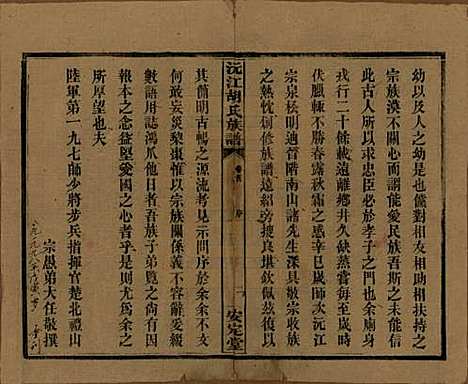 幼以及人之幼是也對相友相助扶持之
宗族漠不關心而謂能愛民族吾斯之未能信
此古人所以求忠臣必於孝子之門余廁身
戎行二十餘載遠離鄉井久缺蒸嘗每至歲時
伏臘輒不勝春露秋霜之感丁亥歲師次沅江
宗泉松明迪晉階南山諸先生深具敬宗收族
之熱忱創修族譜遠紹旁搜
沅江胡氏族譜
卷首
序
一
安定堂
其簡明古暢之源流考見示囑序於余余不文
何敢妄災梨棗惟以宗族關係義不容辭爰綴
數語用誌鴻爪他日吾族子弟覽之尚
報本之念益堅愛國之心者乎是則尤為余之
所厚望也夫
陸軍第一九七師少將步兵指揮官楚北禮山
宗愚弟大任敬撰